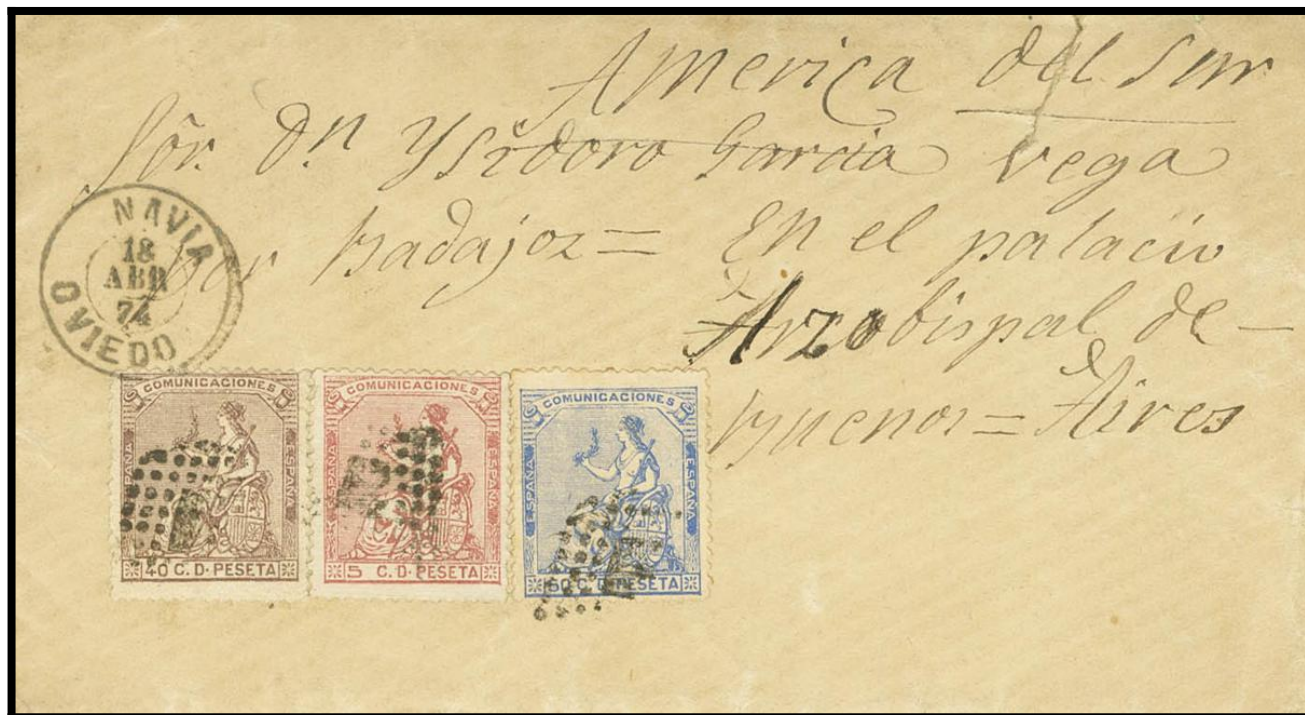 America del Sur
Sõr. Dⁿ Ysidoro Garcia vega
por Badajoz = En el palacio
Arzobispal de —
Buenos = Aires
NAVIA
18
ABR
74
OVIEDO
COMUNICACIONES
ESPAÑA
ESPAÑA
40 C. D. PESETA
COMUNICACIONES
ESPAÑA
5 C. D. PESETA
COMUNICACIONES
ESPAÑA
ESPAÑA
50 C. D. PESETA